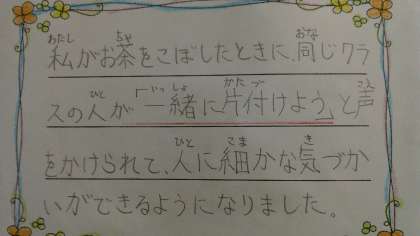 私がお茶をこぼしたときに、同じクラ
スの人が「一緒に片付けよう」と声
をかけられて、人に細かな気づか
いができるようになりました。